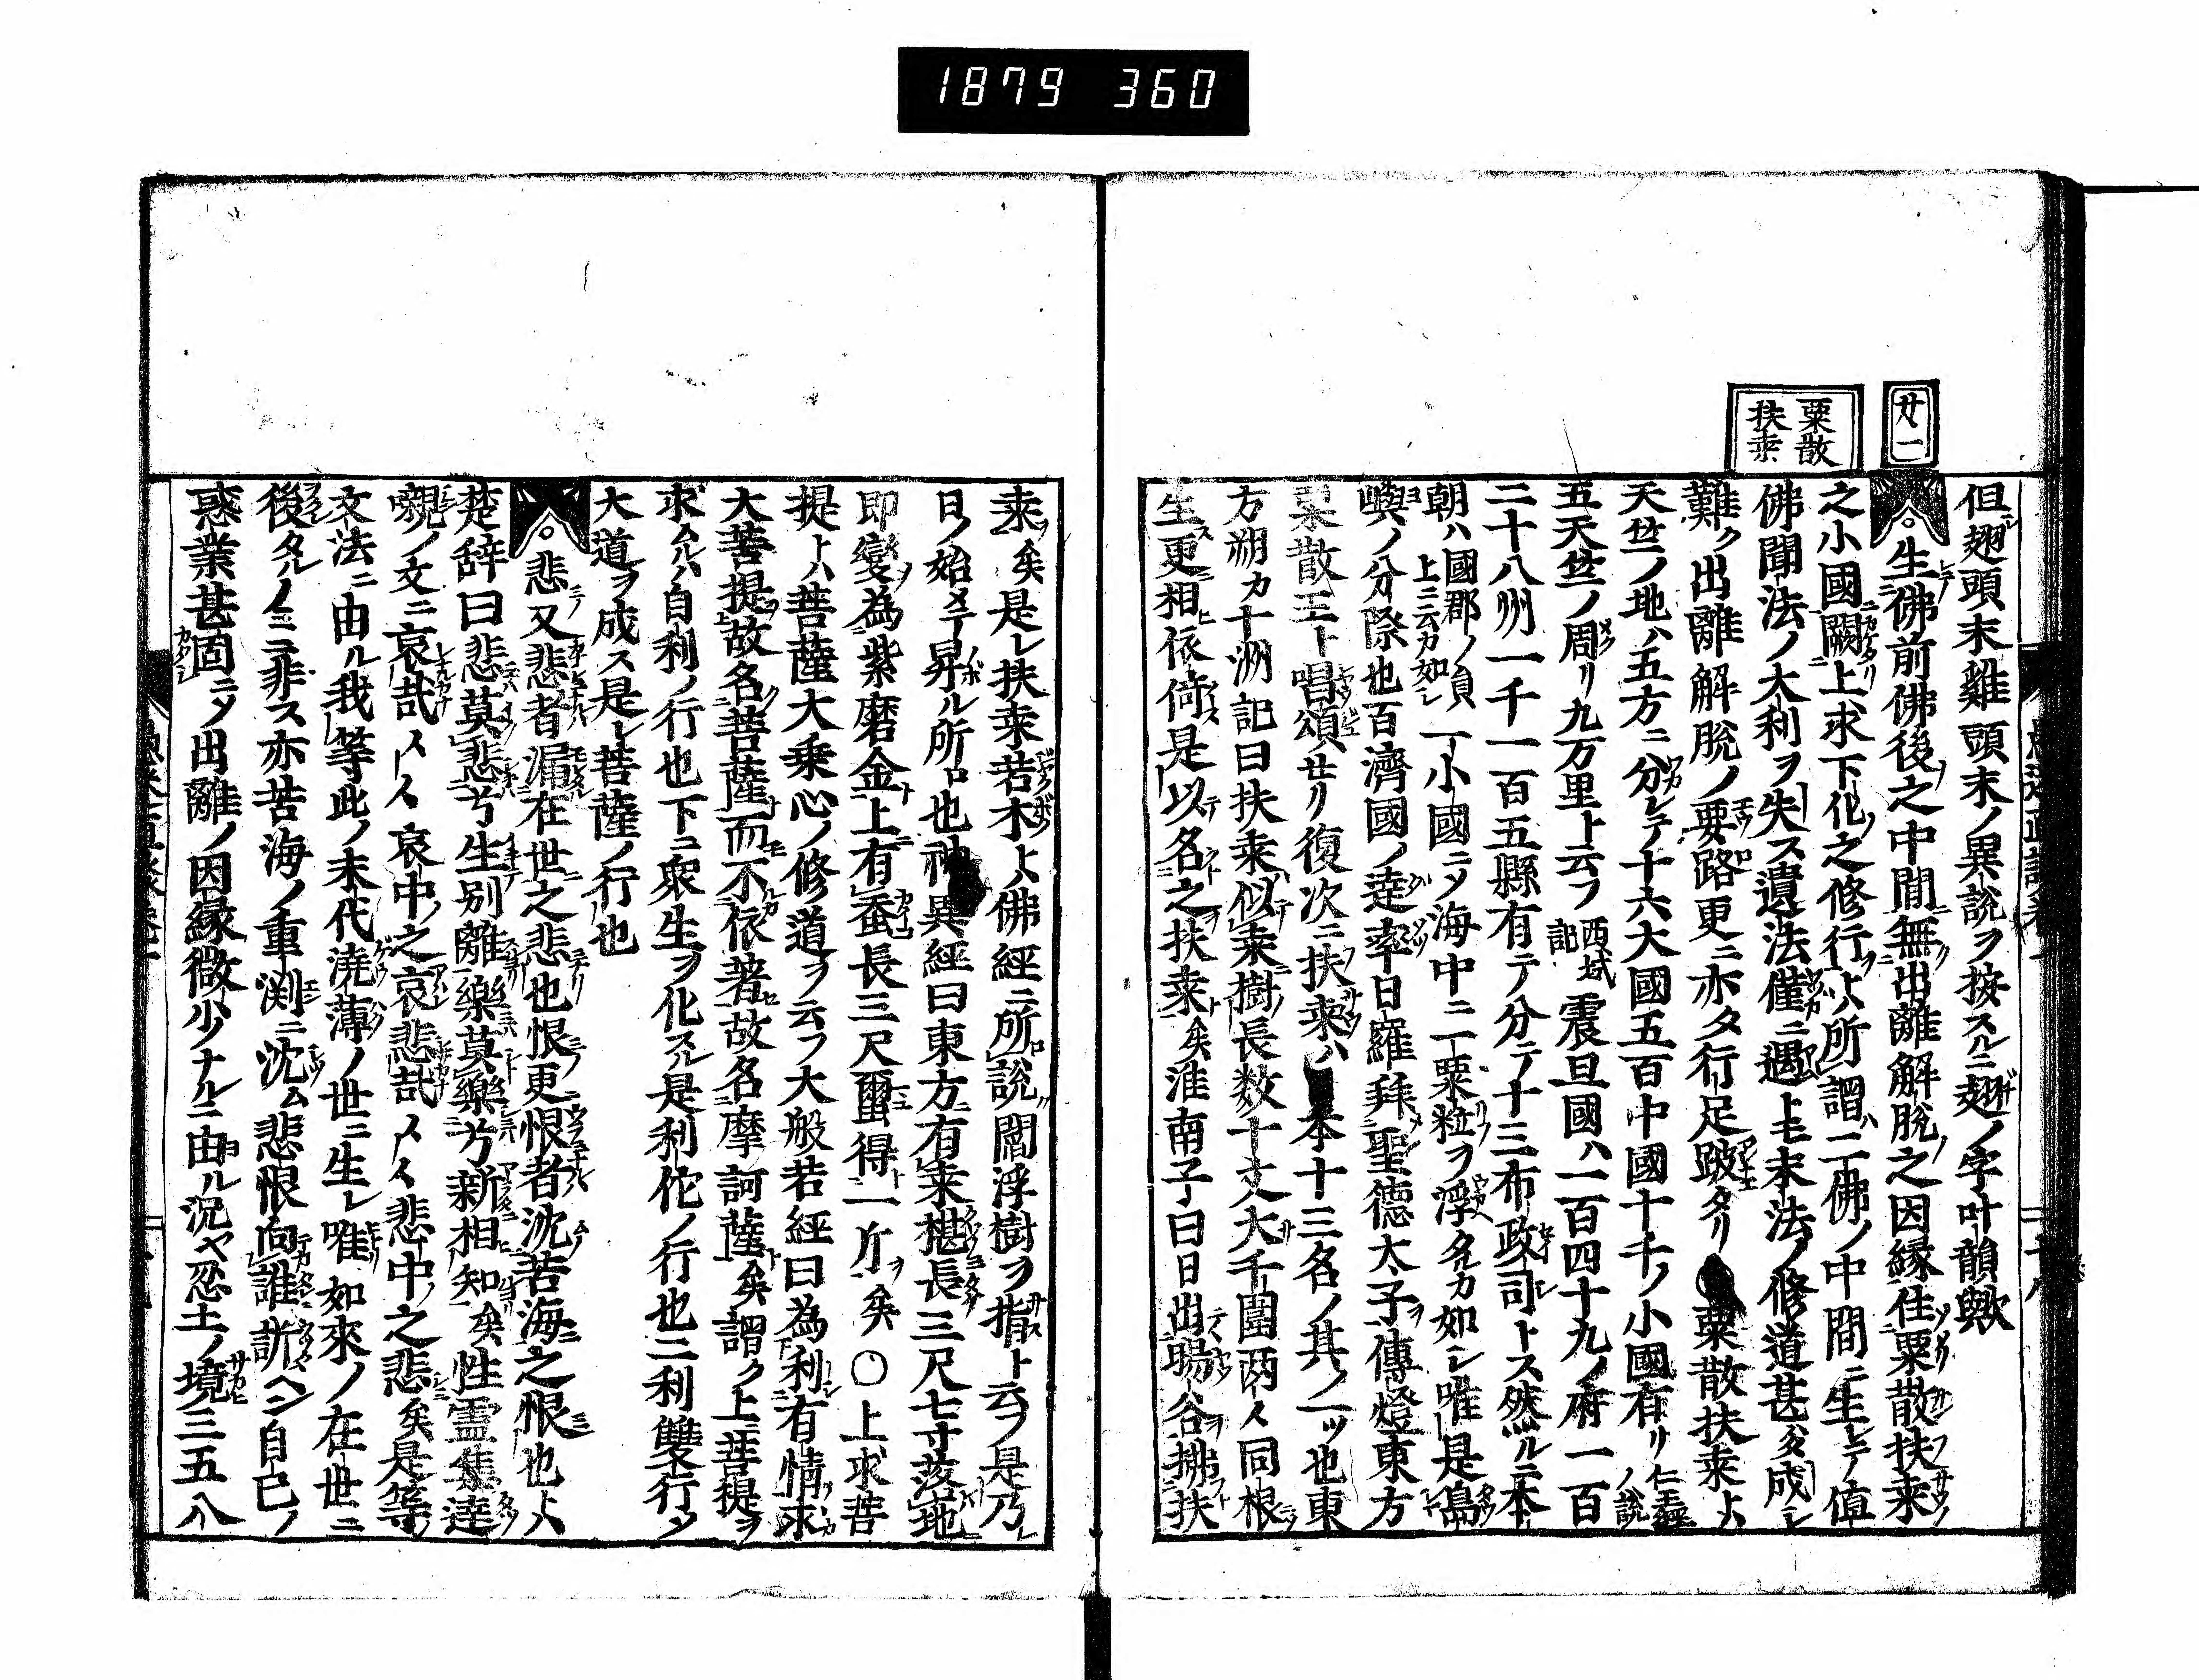 1879 360
廿一
粟散
扶桒
但翅頭末雞頭末ノ異説ヲ按スルニ翅ノ字叶韻歟
生佛前佛後之中間無出離解脱之因縁住粟散扶桒
之小國闕上求下化之修行ト所謂二佛ノ中間ニ生レテ値
佛聞法ノ大利ヲ失ス遺法僅ニ遇トモ末法ノ修道甚タ成レ
難ク出離解脱ノ要路更ニ亦タ行足跛タリ 粟散扶桒トハ
天竺ノ地ハ五方ニ分レテ十六大國五百中國十千ノ小國有リ仁王經ノ説
五天竺ノ周リ九万里ト云フ西域記震旦國ハ一百四十九ノ府一百
二十八州一千一百五縣有テ分テ十三布政司トス然ルニ本
朝ハ國郡ノ員上ニ云カ如シ一小國ニシテ海中ニ一粟粒ヲ浮タルカ如シ唯是島
嶼ノ分際也百濟國ノ達率日羅拜聖德太子傳燈東方
粟散王ト唱頌せリ復次ニ扶桒ハ本十三名ノ其ノ一ツ也東
方朔カ十洲記曰扶桒似桒樹長数十丈大千圍两〻同根
生更相依倚是以名之扶桒矣淮南子曰日出暘谷拂扶
桒矣是レ扶桒若木ト佛經ニ所説閻浮樹ヲ指ト云フ是乃
日ノ始メテ昇ル所ロ也神異經曰東方有桒椹長三尺七寸落地
即變為紫磨金上有蚕長三尺蠒得一斤矣〇上求菩
提トハ菩薩大乗心ノ修道ヲ云フ大般若經曰為利有情求
大菩提故名菩薩而不依著故名摩訶薩矣謂ク上菩提ヲ
求ムルハ自利ノ行也下ニ衆生ヲ化スル是利佗ノ行也二利雙行シ
大道ヲ成ス是レ菩薩ノ行也
悲又悲者漏在世之悲也恨更恨者沈苦海之恨也トハ
楚辞曰悲莫悲兮生別離樂莫樂兮新相知矣性霊集達
嚫ノ文ニ哀哉〻〻哀中之哀悲哉〻〻悲中之悲矣是等ノ
文法ニ由ル我等此ノ末代澆薄ノ世ニ生レ唯如來ノ在世ニ
後タルノミニ非ス亦苦海ノ重渕ニ沈ム悲恨向誰訴ヘン自己ノ
惑業甚固ニシテ出離ノ因縁微少ナルニ由ル況ヤ忍土ノ境三五八